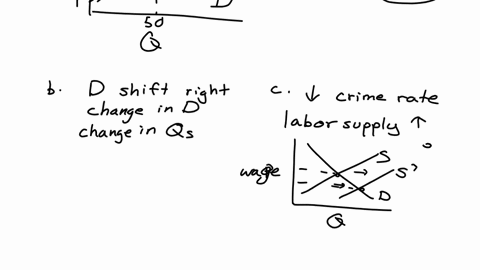 D
50
Q
b. D shift right
change in D
change in Qs
c. ↓ crime rate
labor supply ↑
S
S'
wage
D
Q